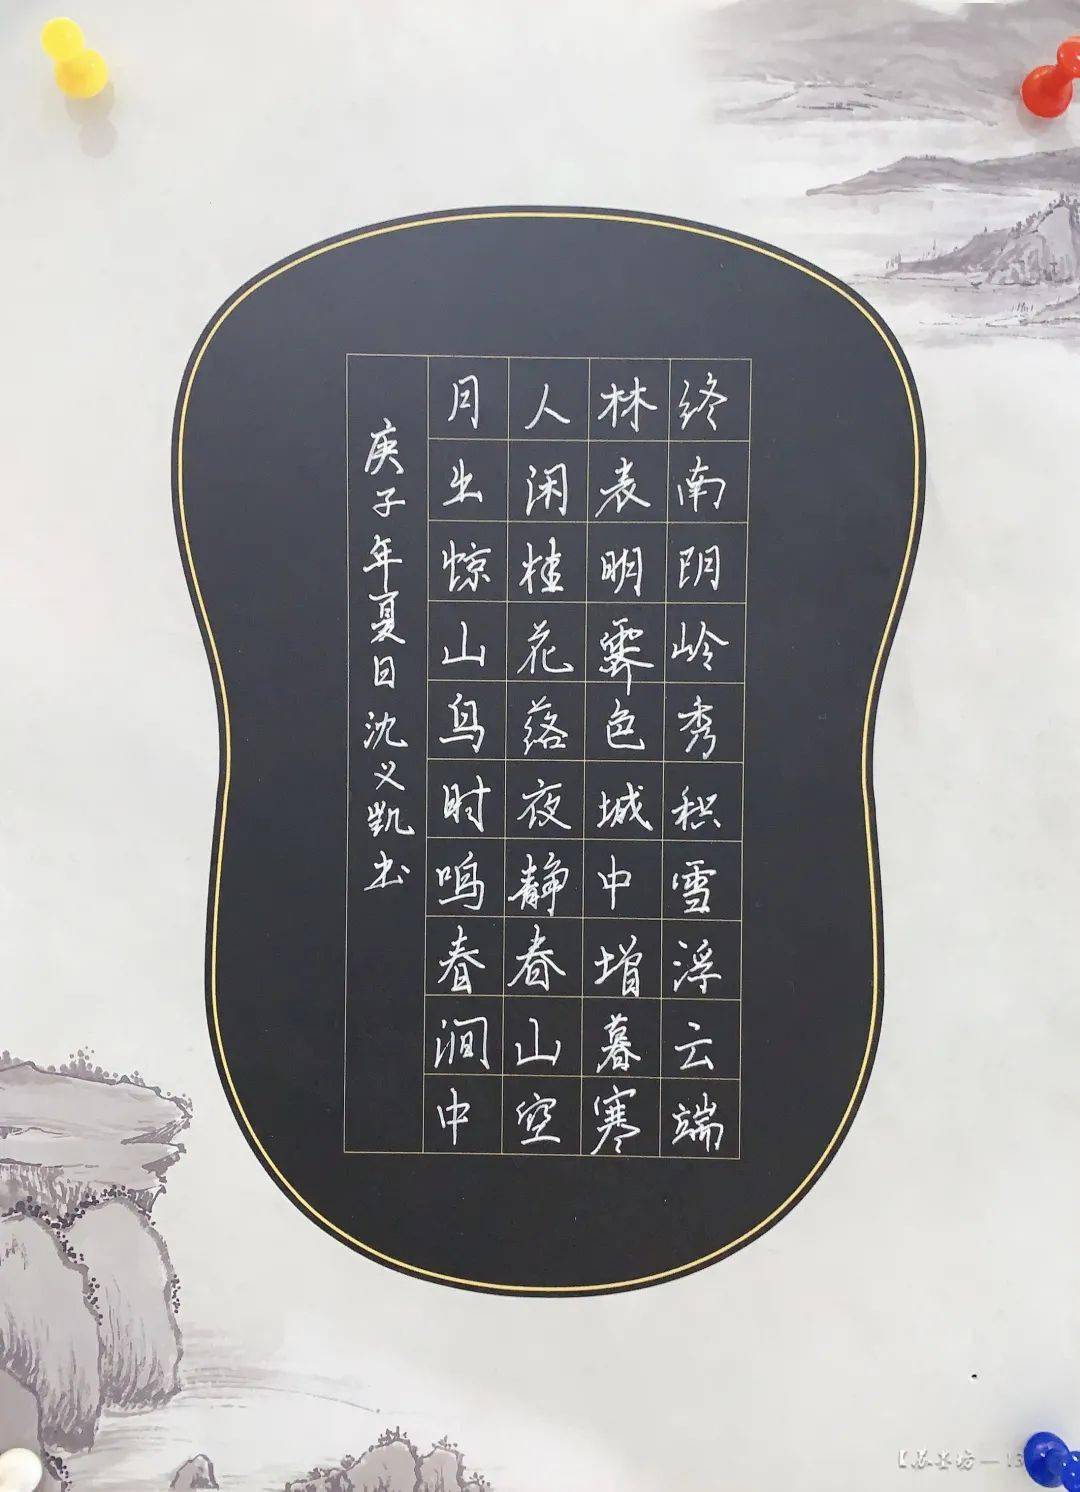 终南阴岭秀积雪浮云端
林表明霁色城中增暮寒
人闲桂花落夜静春山空
月出惊山鸟时鸣春涧中
庚子年夏日沈义凯书